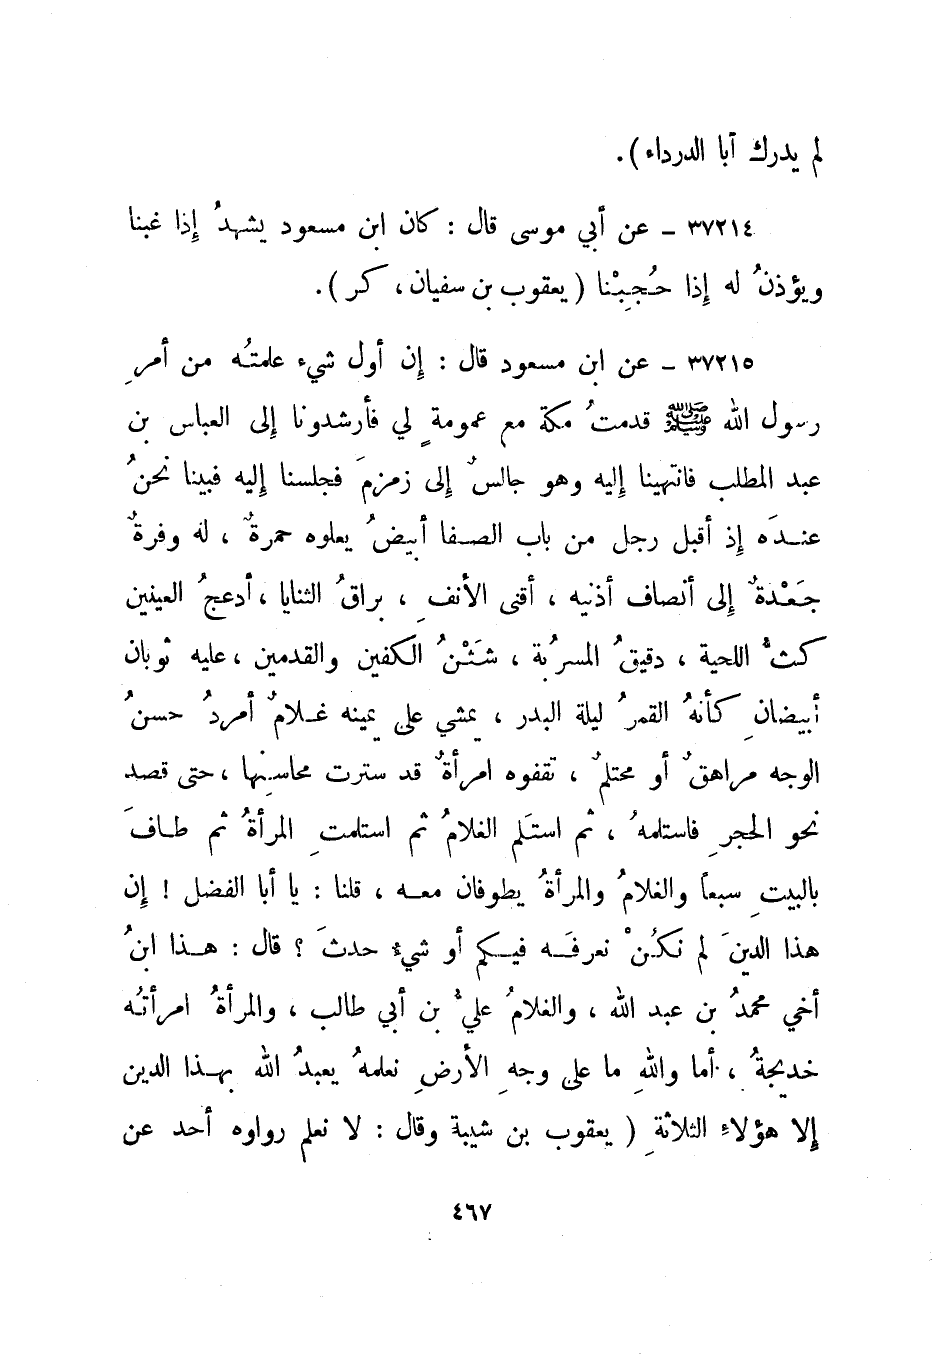 لم يدرك آبا الدرداء ).
٣٧٢١٤ ـ عن أبي موسى قال : كان ابن مسعود يشهدُ إذا غبنا
ويؤذنُ له إذا حُجِبْنا ( يعقوب بن سفيان ، كر ).
٣٧٢١٥ ـ عن ابن مسعود قال : إن أول شيء علمتُه من أمرِ
رسول الله ﷺ قدمتُ مكة مع عمومةٍ لي فأرشدونا إلى العباس بن
عبد المطلب فانتهينا إليه وهو جالسٌ إلى زمزمَ فجلسنا إليه فبينا نحنُ
عندَه إذ أقبل رجل من باب الصفا أبيضُ يعلوه حمرةٌ ، له وفرةٌ
جَعْدةٌ إلى أنصاف أذنيه ، أقنى الأنفِ ، براقُ الثنايا ، أدعجُ العينين
كثُّ اللحية ، دقيقُ المسرُبة ، شَثْنُ الكفين والقدمين ، عليه ثوبان
أبيضانِ كأنهُ القمرُ ليلة البدر ، يمشي على يمينه غلامٌ أمردُ حسنُ
الوجه مراهقٌ أو محتلمٌ ، تقفوه امرأةٌ قد سترت محاسنِها ، حتى قصد
نحو الحجرِ فاستلمهُ ، ثم استَلم الغلامُ ثم استلمتِ المرأةُ ثم طافَ
بالبيتِ سبعاً والغلامُ والمرأةُ يطوفان معه ، قلنا : يا أبا الفضل ! إن
هذا الدينَ لم نكُنْ نعرفَه فيكم أو شيءٌ حدثَ ؟ قال : هذا ابنُ
أخي محمدُ بن عبد الله ، والغلامُ عليُّ بن أبي طالب ، والمرأةُ امرأتُه
خديجةُ ، أما واللهِ ما على وجهِ الأرضِ نعلمهُ يعبدُ الله بهذا الدين
إلا هؤلاءِ الثلاثةِ ( يعقوب بن شيبة وقال : لا نعلم رواوه أحد عن
٤٦٧